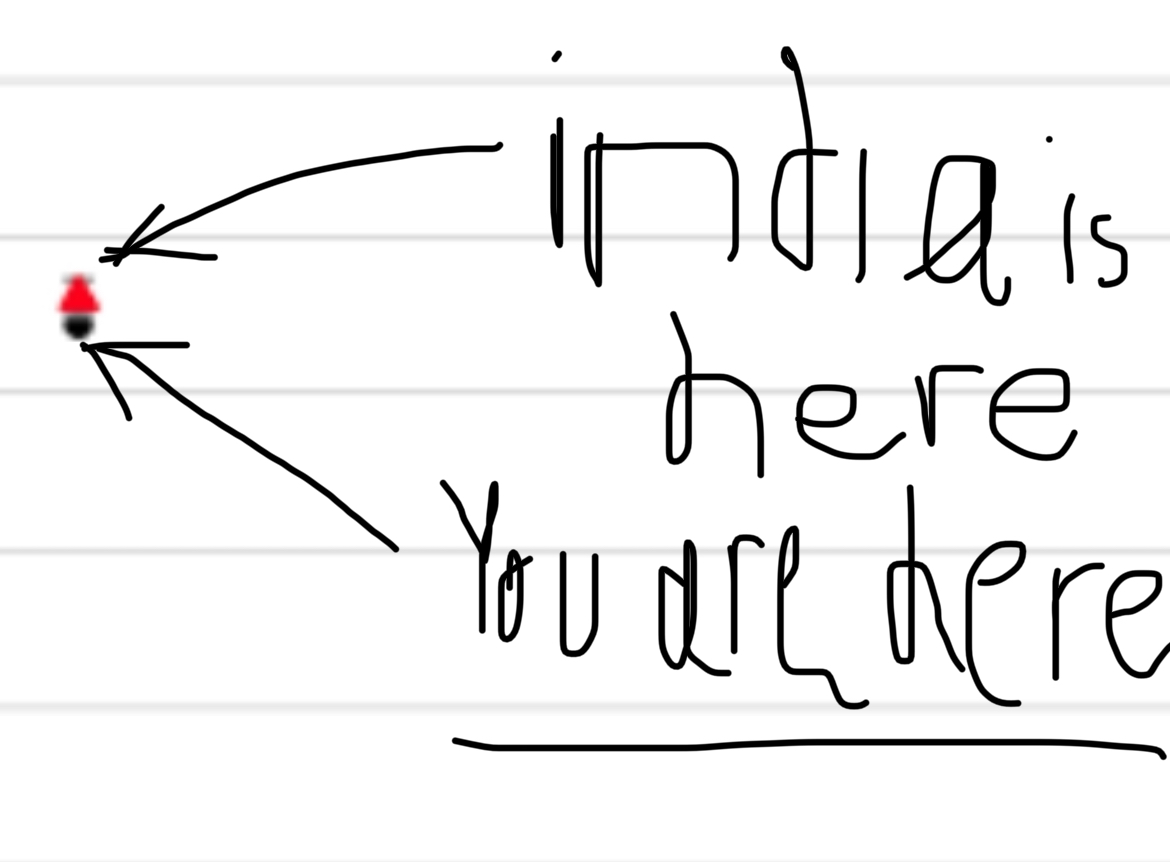 india is
here
You are here